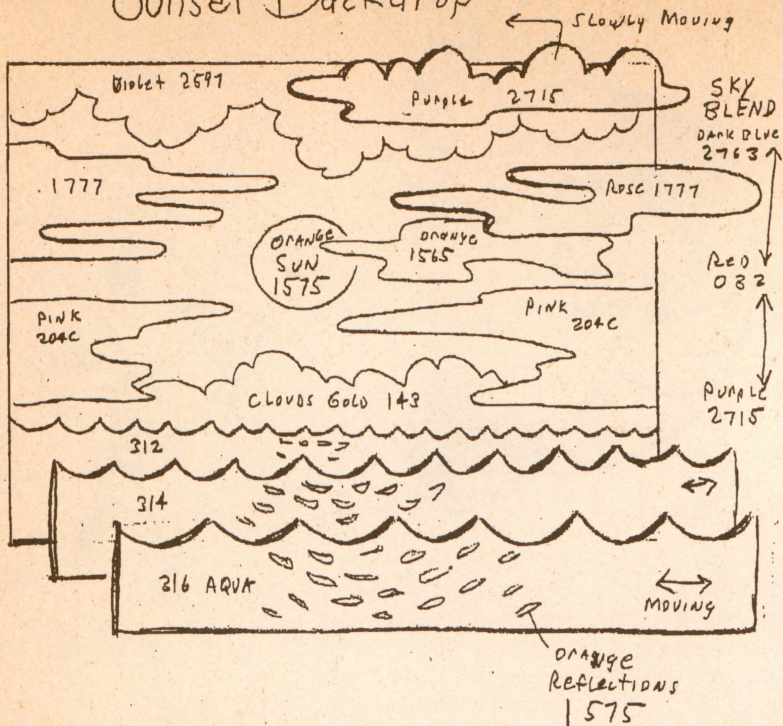 Sunset Backdrop
Slowly Moving
Violet 2597
Purple 2715
SKY
BLEND
DARK BLUE
2763
1777
Rose 1777
ORANGE
SUN
1575
ORANGE
1565
RED
032
PINK
204C
PINK
204C
PURPLE
2715
CLOUDS GOLD 143
312
314
316 AQUA
MOVING
ORANGE
REFLECTIONS
1575